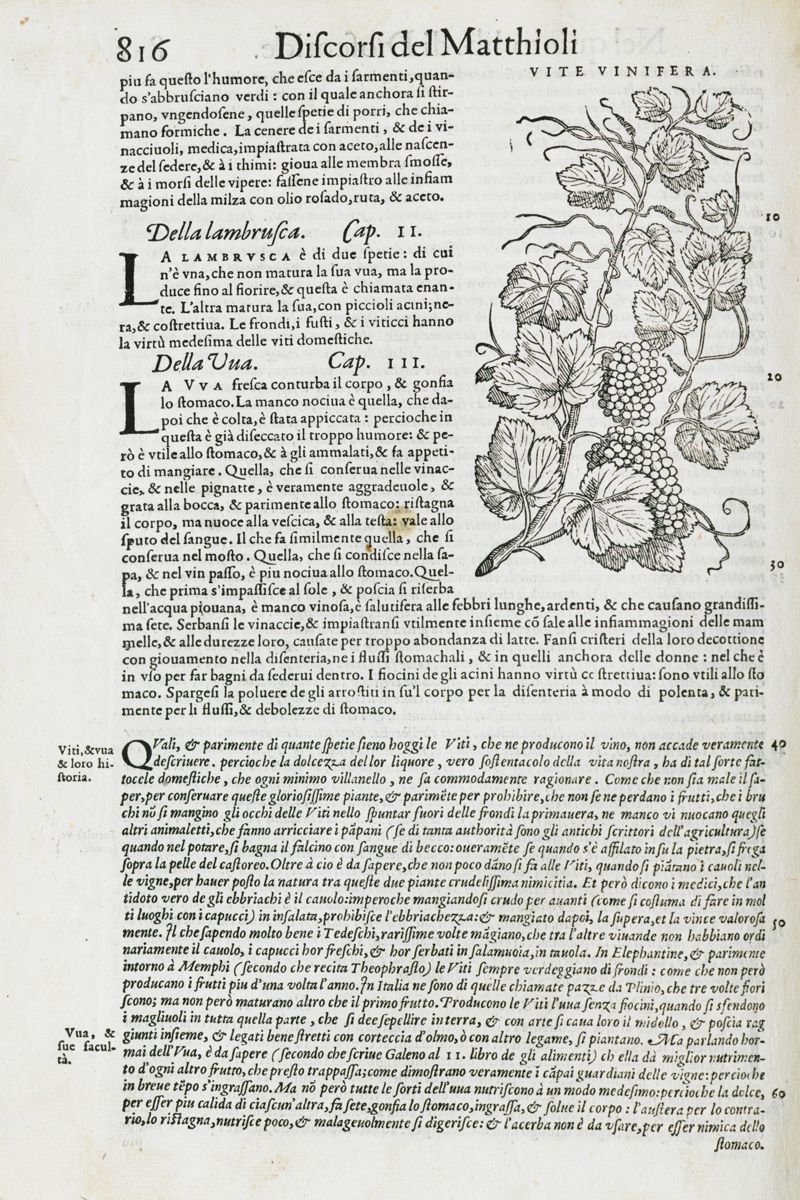 816 Discorsi del Matthioli
piu fa questo l'humore, che esce da i sarmenti, quan-
do s'abbrusciano verdi: con il quale anchora si stir-
pano, vngendosene, quelle spetie di porri, che chia-
mano formiche. La cenere de i sarmenti, & de i vi-
nacciuoli, medica, impiastrata con aceto, alle nascen-
ze del sedere, & à i thimi: gioua alle membra smosse,
& à i morsi delle vipere: fassene impiastro alle infiam
magioni della milza con olio rosado, ruta, & aceto.
VITE VINIFERA.
Della lambrusca. Cap. II.
LA LAMBRVSCA è di due spetie: di cui
n'è vna, che non matura la sua vua, ma la pro-
duce fino al fiorire, & questa è chiamata enan-
te. L'altra matura la sua, con piccioli acini; ne-
ra, & costrettiua. Le frondi, i fusti, & i viticci hanno
la virtù medesima delle viti domestiche.
Della Vua. Cap. III.
LA VVA fresca conturba il corpo, & gonfia
lo stomaco. La manco nociua è quella, che da-
poi che è colta, è stata appiccata: percioche in
questa è già diseccato il troppo humore: & pe-
rò è vtile allo stomaco, & à gli ammalati, & fa appeti-
to di mangiare. Quella, che si conserua nelle vinac-
cie, & nelle pignatte, è veramente aggradeuole, &
grata alla bocca, & parimente allo stomaco: ristagna
il corpo, ma nuoce alla vescica, & alla testa: vale allo
sputo del sangue. Il che fa similmente quella, che si
conserua nel mosto. Quella, che si condisce nella sa-
pa, & nel vin passo, è piu nociua allo stomaco. Quel-
la, che prima s'impassisce al sole, & poscia si riserba
nell'acqua piouana, è manco vinosa, è salutifera alle febbri lunghe, ardenti, & che causano grandissi-
ma sete. Serbansi le vinaccie, & impiastransi vtilmente insieme cō sale alle infiammagioni delle mam
melle, & alle durezze loro, causate per troppo abondanza di latte. Fansi cristeri della loro decottione
con giouamento nella disenteria, ne i flussi stomachali, & in quelli anchora delle donne: nel che è
in vso per far bagni da sederui dentro. I fiocini de gli acini hanno virtù costrettiua: sono vtili allo sto
maco. Spargesi la poluere de gli arrostiti in su'l corpo per la disenteria à modo di polenta, & pari-
mente per li flussi, & debolezze di stomaco.
10
20
30
Viti, & vua
& loro hi-
storia.
QVali, & parimente di quante spetie sieno hoggi le Viti, che ne producono il vino, non accade veramente 40
descriuere. percioche la dolcezza del lor liquore, vero sostentacolo della vita nostra, ha di tal sorte fat-
tocele domestiche, che ogni minimo villanello, ne sa commodamente ragionare. Come che non sia male il sa-
per, per conseruare queste gloriosissime piante, & parimēte per prohibire, che non se ne perdano i frutti, che i bru
chi nō si mangino gli occhi delle Viti nello spuntar fuori delle frondi la primauera, ne manco vi nuocano quegli
altri animaletti, che fanno arricciare i pāpani (se di tanta authorità sono gli antichi scrittori dell'agricultura) se
quando nel potare, si bagna il falcino con sangue di becco: oueramēte se quando s'è affilato in su la pietra, si frega
sopra la pelle del castoreo. Oltre à cio è da sapere, che non poco dāno si fà alle Viti, quando si piātano i cauoli nel-
le vigne, per hauer posto la natura tra queste due piante crudelissima nimicitia. Et però dicono i medici, che l'an
tidoto vero de gli ebbriachi è il cauolo: imperoche mangiandosi crudo per auanti (come si costuma di fare in mol
ti luoghi con i capucci) in insalata, prohibisce l'ebbriachezza: & mangiato dapoi, la supera, et la vince valorosa 50
mente. Il che sapendo molto bene i Tedeschi, rarissime volte māgiano, che tra l'altre viuande non habbiano ordi
nariamente il cauolo, i capucci hor freschi, & hor serbati in salamuoia, in tauola. In Elephantine, & parimente
intorno à Memphi (secondo che recita Theophrasto) le Viti sempre verdeggiano di frondi: come che non però
producano i frutti piu d'una volta l'anno. In Italia ne sono di quelle chiamate pazze da Plinio, che tre volte fiori
scono; ma non però maturano altro che il primo frutto. Producono le Viti l'uua senza fiocini, quando si sfendono
i magliuoli in tutta quella parte, che si dee sepellire in terra, & con arte si caua loro il midollo, & poscia rag
Vua, &
sue facul-
tà.
giunti insieme, & legati bene stretti con corteccia d'olmo, ò con altro legame, si piantano. Ma parlando hor-
mai dell'Vua, è da sapere (secondo che scriue Galeno al 11. libro de gli alimenti) ch ella dà miglior nutrimen-
to d'ogni altro frutto, che presto trappassa; come dimostrano veramente i cāpai guardiani delle vigne: percioche
in breue tēpo s'ingrassano. Ma nō però tutte le sorti dell'uua nutriscono à un modo medesimo: percioche la dolce, 60
per esser piu calida di ciascun'altra, fa sete, gonfia lo stomaco, ingrassa, & solue il corpo: l'austera per lo contra-
rio, lo ristagna, nutrisce poco, & malageuolmente si digerisce: & l'acerba non è da vsare, per esser nimica dello
stomaco.